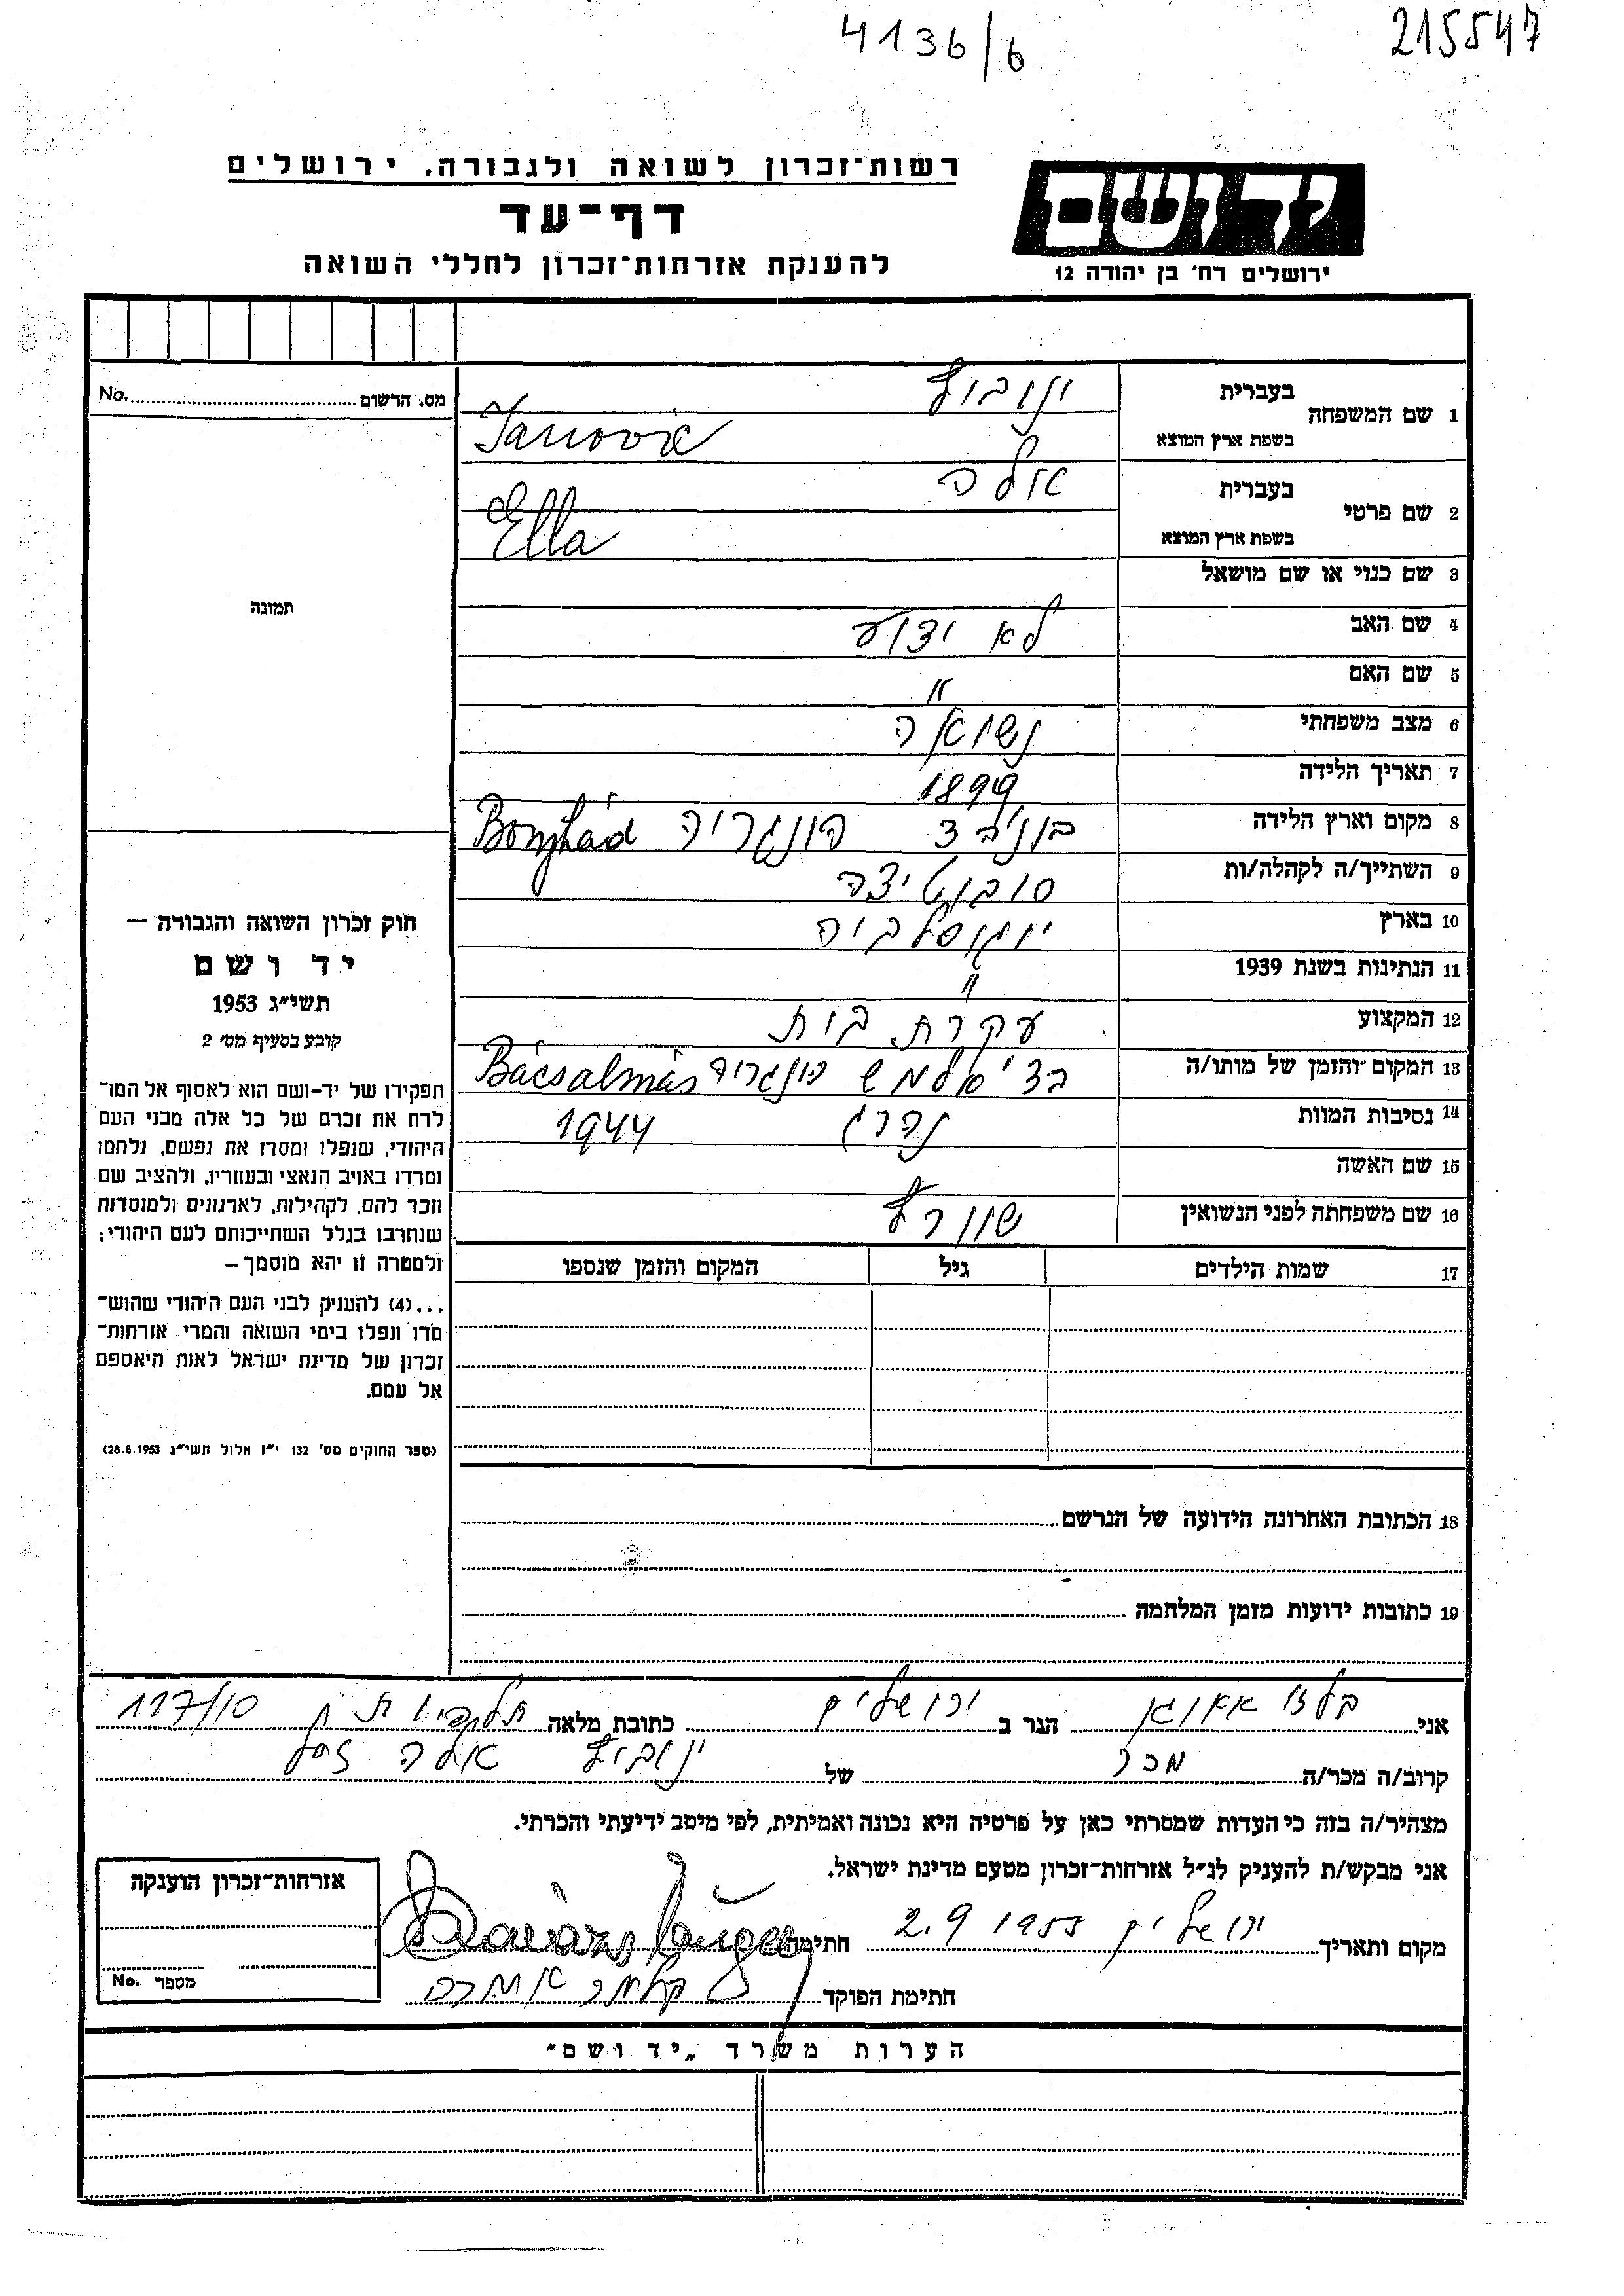 4136/6
215547
רשות־זכרון לשואה ולגבורה, ירושלים
דף־עד
להענקת אזרחות־זכרון לחללי השואה
יד ושם
ירושלים רח' בן יהודה 12
מס. הרשום No.
1 שם המשפחה
בעברית ינוביץ
בשפת ארץ המוצא Janović
2 שם פרטי
בעברית אלה
בשפת ארץ המוצא Ella
3 שם כנוי או שם מושאל
4 שם האב לא ידוע
5 שם האם "
6 מצב משפחתי נשואה
7 תאריך הלידה 1899
8 מקום וארץ הלידה בוניהד הונגריה Bonyhád
9 השתייך/ה לקהלה/ות סובוטיצה
10 בארץ יוגוסלביה
11 הנתינות בשנת 1939 "
12 המקצוע עקרת בית
13 המקום והזמן של מותו/ה הונגריה Bácsalmás
14 נסיבות המוות נהרג 1944
15 שם האשה
16 שם משפחתה לפני הנשואין שוורץ
17 שמות הילדים גיל המקום והזמן שנספו
תמונה
חוק זכרון השואה והגבורה —
יד ושם
תשי״ג 1953
קובע בסעיף מס׳ 2
תפקידו של יד-ושם הוא לאסוף אל המו־
לדת את זכרם של כל אלה מבני העם
היהודי, שנפלו ומסרו את נפשם, נלחמו
ומרדו באויב הנאצי ובעוזריו, ולהציב שם
וזכר להם, לקהילות, לארגונים ולמוסדות
שנחרבו בגלל השתייכותם לעם היהודי;
ולמטרה זו יהא מוסמך —
...(4) להעניק לבני העם היהודי שהוש־
מדו ונפלו בימי השואה והמרי אזרחות־
זכרון של מדינת ישראל לאות היאספם
אל עמם.
(ספר החוקים מס׳ 132 י״ז אלול תשי״ג 28.8.1953)
18 הכתובת האחרונה הידועה של הנרשם
19 כתובות ידועות מזמן המלחמה
אני הגר ב ירושלים כתובת מלאה תלפיות 117/10
קרוב/ה מכר/ה מכר של ינוביץ אלה ז״ל
מצהיר/ה בזה כי העדות שמסרתי כאן על פרטיה היא נכונה ואמיתית, לפי מיטב ידיעתי והכרתי.
אני מבקש/ת להעניק לנ״ל אזרחות־זכרון מטעם מדינת ישראל.
מקום ותאריך ירושלים 2.9 1955 חתימה
חתימת הפוקד
אזרחות־זכרון הוענקה
מספר No.
הערות משרד „יד ושם״